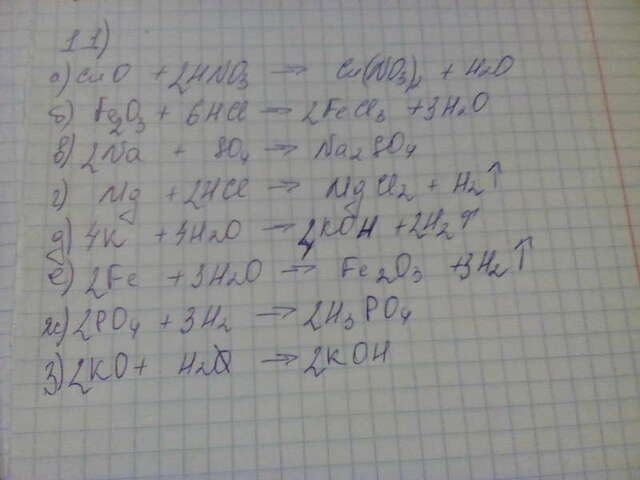 11)
а) CuO + 2HNO3 → Cu(NO3)2 + H2O
б) Fe2O3 + 6HCl → 2FeCl3 + 3H2O
в) 2Na + SO4 → Na2SO4
г) Mg + 2HCl → MgCl2 + H2↑
д) 4K + 4H2O → 4KOH + 2H2↑
е) 2Fe + 3H2O → Fe2O3 + 3H2↑
ж) 2PO4 + 3H2 → 2H3PO4
з) 2KO + H2O → 2KOH